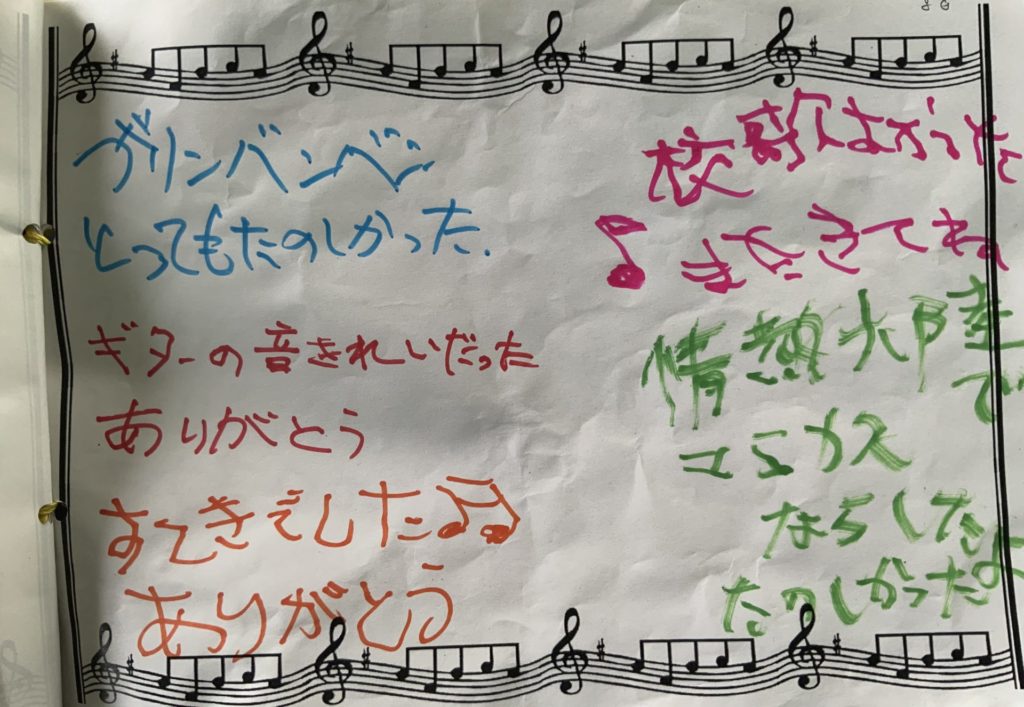 ブリンバンベン
とってもたのしかった.
ギターの音きれいだった
ありがとう
すてきでした♫
ありがとう
校歌よかったた
♪またきてね
情熱大陸で
コミカス
ならした
たのしかったよ